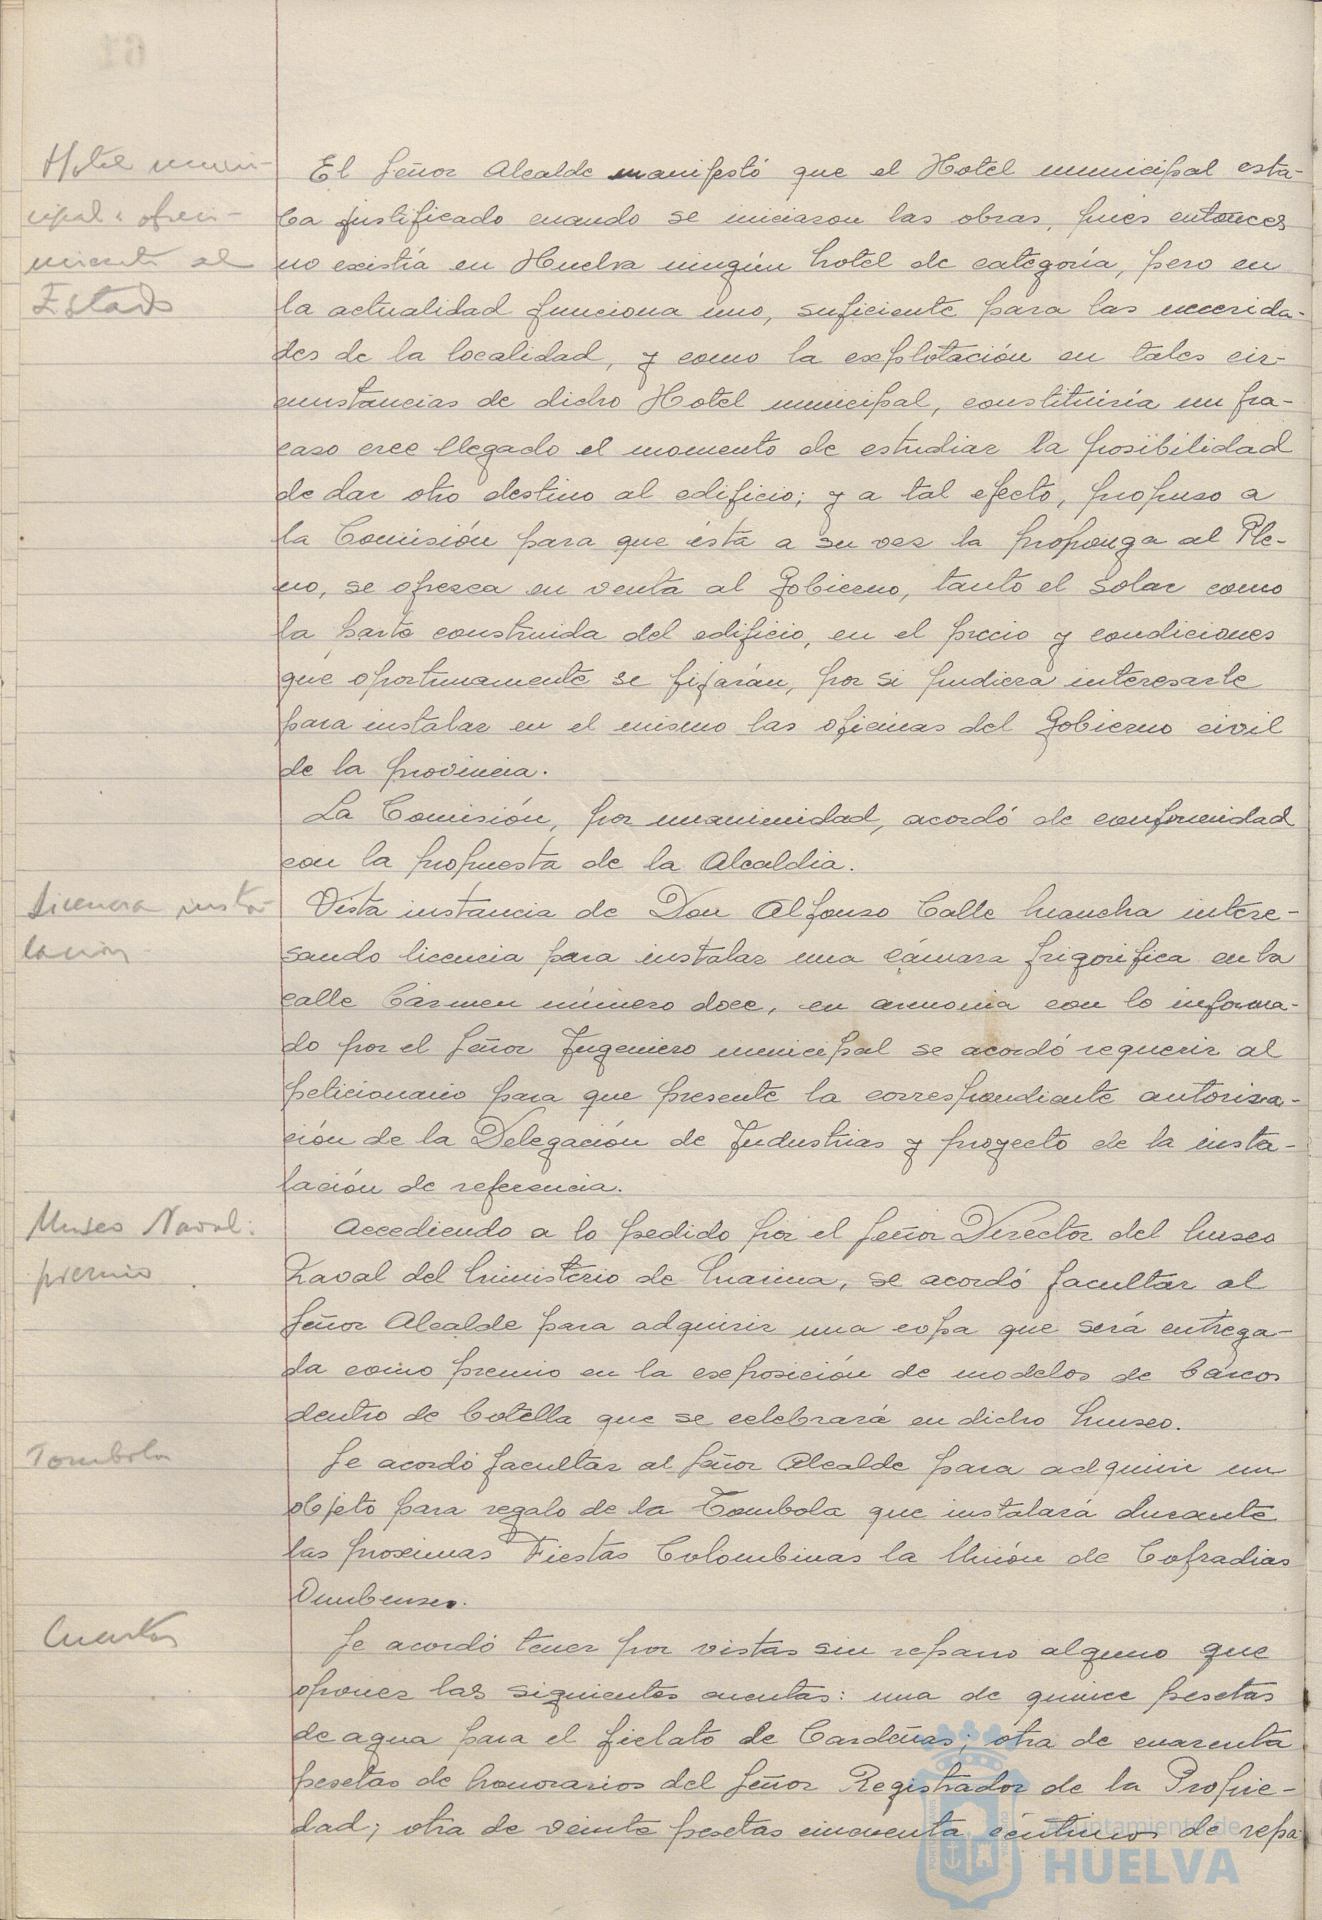 Hotel muni-
cipal: ofreci-
miento al
Estado
El Señor Alcalde manifestó que el Hotel municipal esta-
ba justificado cuando se iniciaron las obras, pues entonces
no existía en Huelva ningún hotel de categoría, pero en
la actualidad funciona uno, suficiente para las necesida-
des de la localidad, y como la explotación en tales cir-
cunstancias de dicho Hotel municipal, constituiría un fra-
caso cree llegado el momento de estudiar la posibilidad
de dar otro destino al edificio; y a tal efecto, propuso a
la Comisión para que ésta a su vez la proponga al Ple-
no, se ofrezca en venta al Gobierno, tanto el solar como
la parte construida del edificio, en el precio y condiciones
que oportunamente se fijarán, por si pudiera interesarle
para instalar en el mismo las oficinas del Gobierno civil
de la provincia.
La Comisión, por unanimidad, acordó de conformidad
con la propuesta de la Alcaldia.
Licencia insta-
lación
Vista instancia de Don Alfonso Calle Mancha intere-
sando licencia para instalar una cámara frigorifica en la
calle Cármen número doce, en armonia con lo informa-
do por el Señor Ingeniero municipal se acordó requerir al
peticionario para que presente la correspondiente autoriza-
ción de la Delegación de Industrias y proyecto de la insta-
lación de referencia.
Museo Naval:
premio
Accediendo a lo pedido por el Señor Director del Museo
Naval del Ministerio de Marina, se acordó facultar al
Señor Alcalde para adquirir una copa que será entrega-
da como premio en la exposición de modelos de barcos
dentro de botella que se celebrará en dicho Museo.
Tombola
Se acordó facultar al Señor Alcalde para adquirir un
objeto para regalo de la Tombola que instalará durante
las proximas Fiestas Colombinas la Unión de Cofradias
Onubenses.
Cuentas
Se acordó tener por vistas sin reparo alguno que
oponer las siguientes cuentas: una de quince pesetas
de agua para el fielato de Cardeñas; otra de cuarenta
pesetas de honorarios del Señor Registrador de la Propie-
dad; otra de veinte pesetas cincuenta céntimos de repa-
Ayuntamiento de
HUELVA